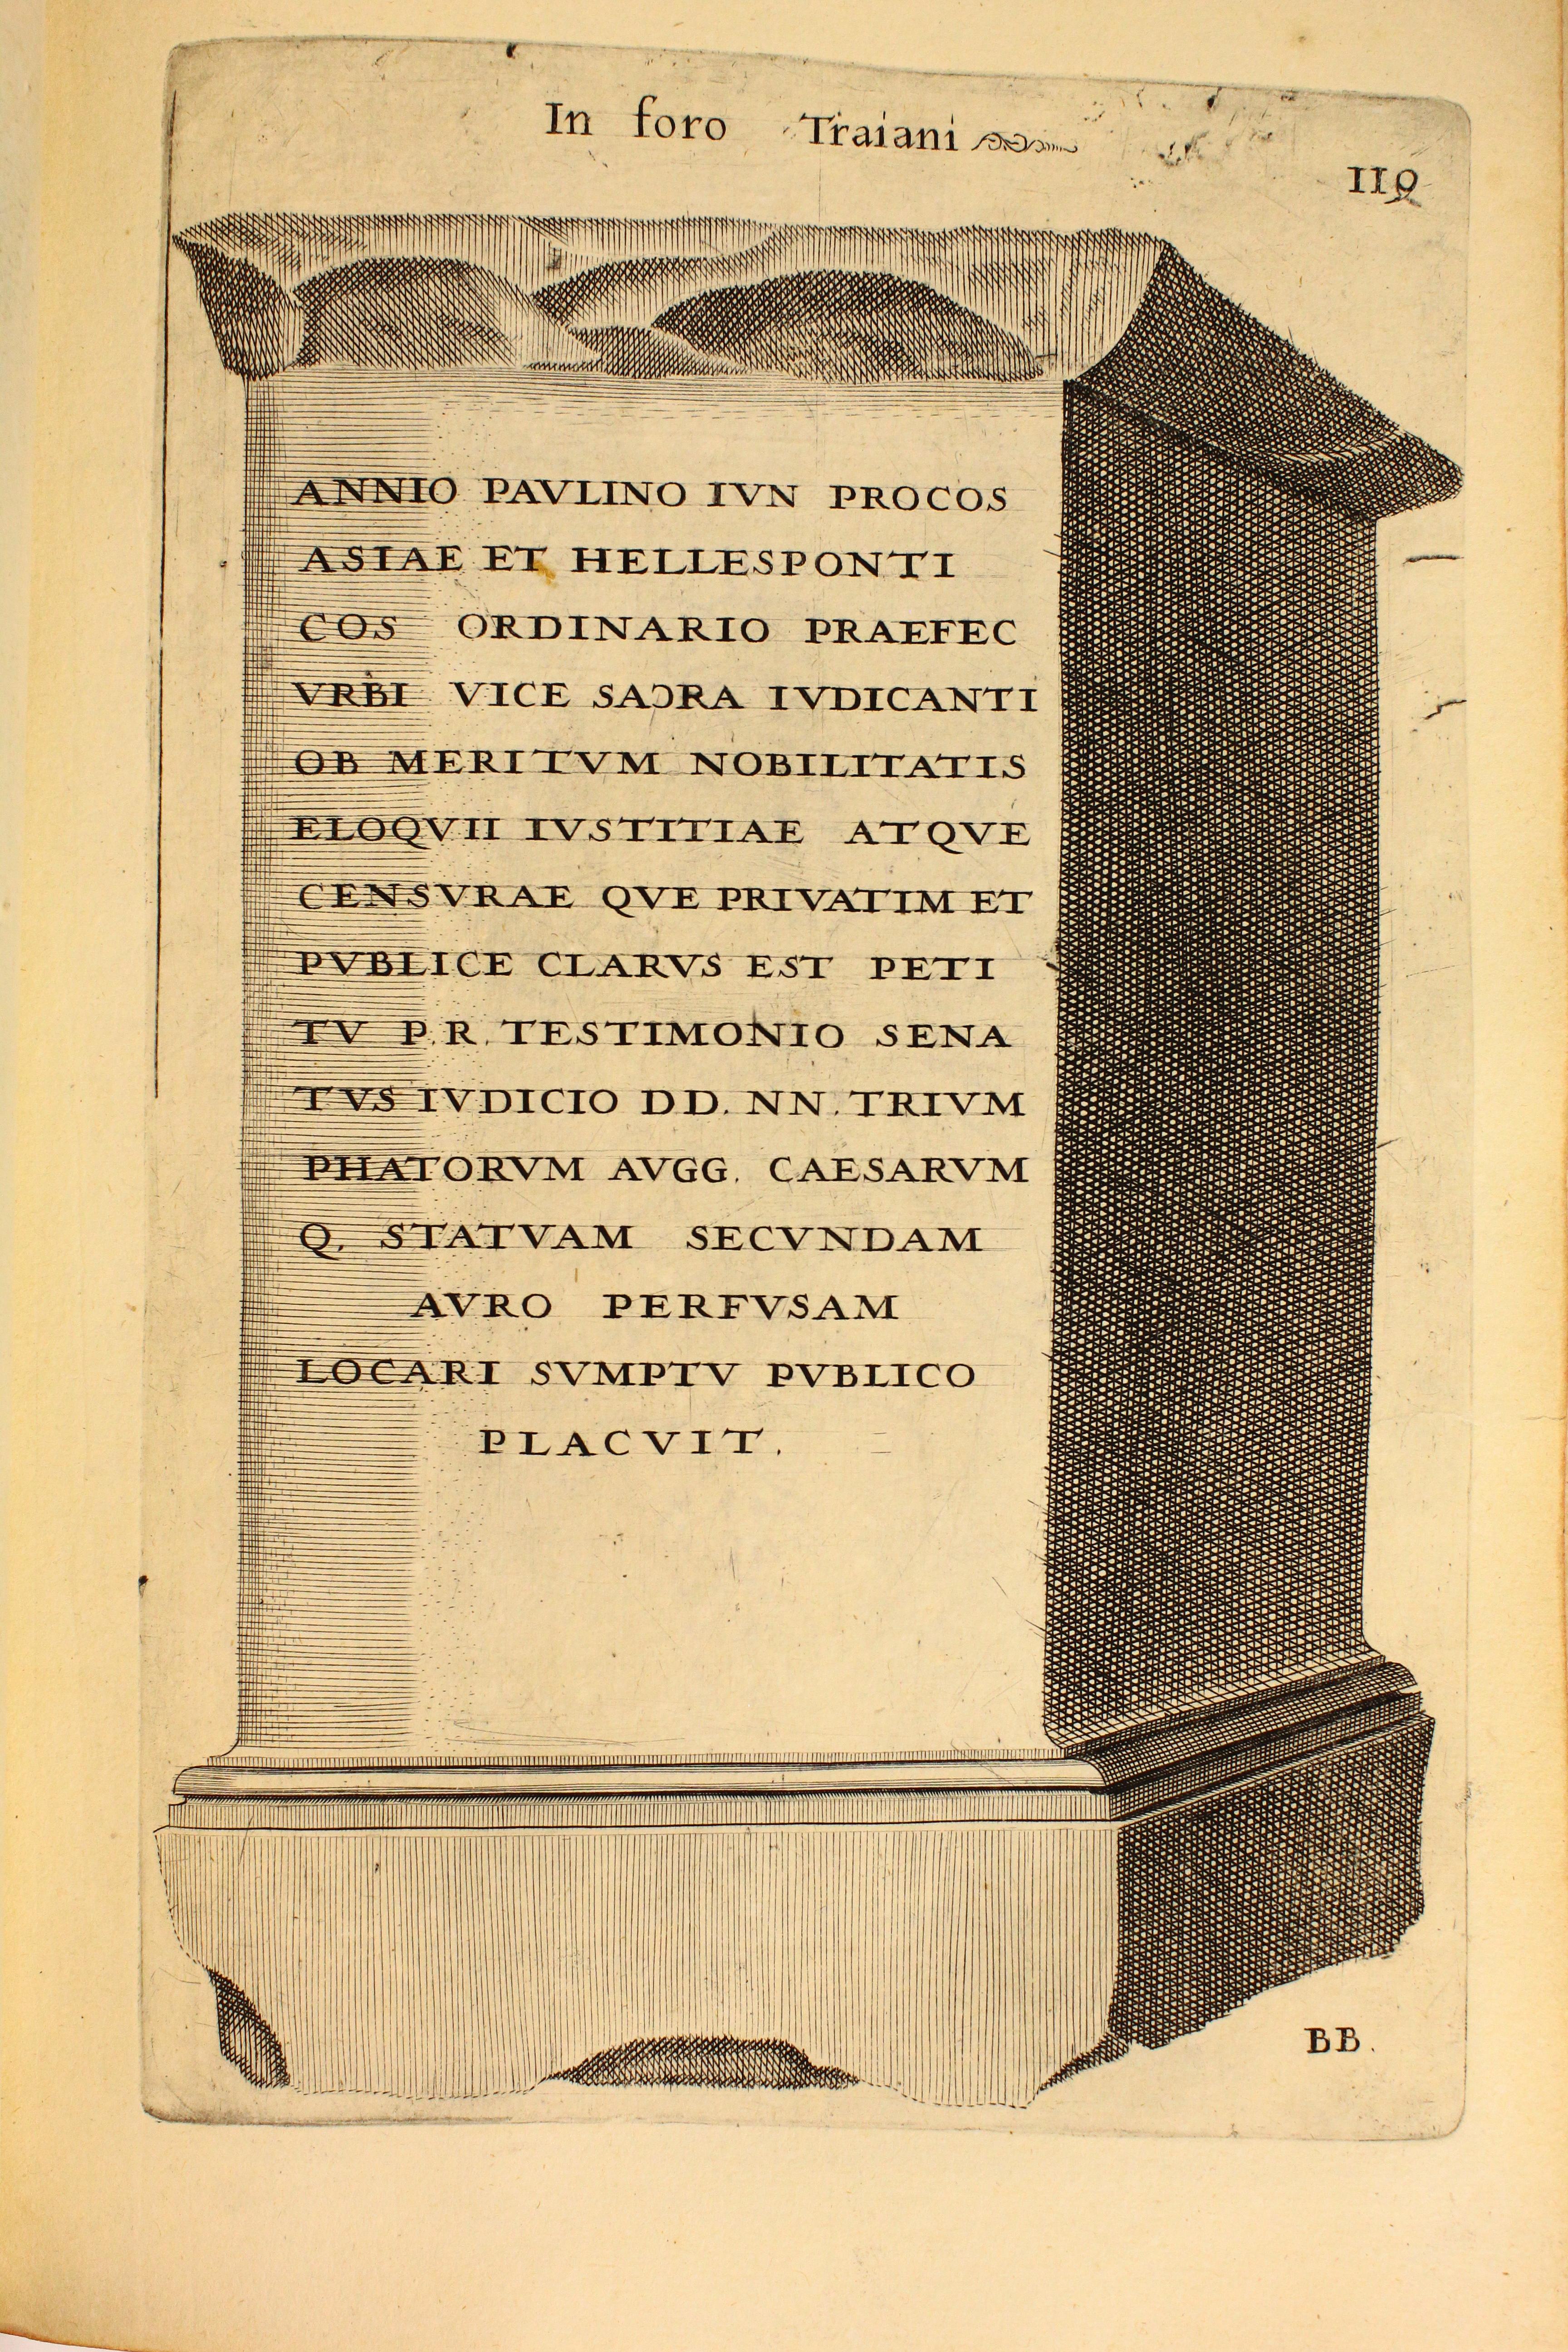 In foro Traiani
119
ANNIO PAVLINO IVN PROCOS
ASIAE ET HELLESPONTI
COS ORDINARIO PRAEFEC
VRBI VICE SAƆRA IVDICANTI
OB MERITVM NOBILITATIS
ELOQVII IVSTITIAE ATQVE
CENSVRAE QVE PRIVATIM ET
PVBLICE CLARVS EST PETI
TV P.R. TESTIMONIO SENA
TVS IVDICIO DD. NN. TRIVM
PHATORVM AVGG. CAESARVM
Q. STATVAM SECVNDAM
AVRO PERFVSAM
LOCARI SVMPTV PVBLICO
PLACVIT.
BB.